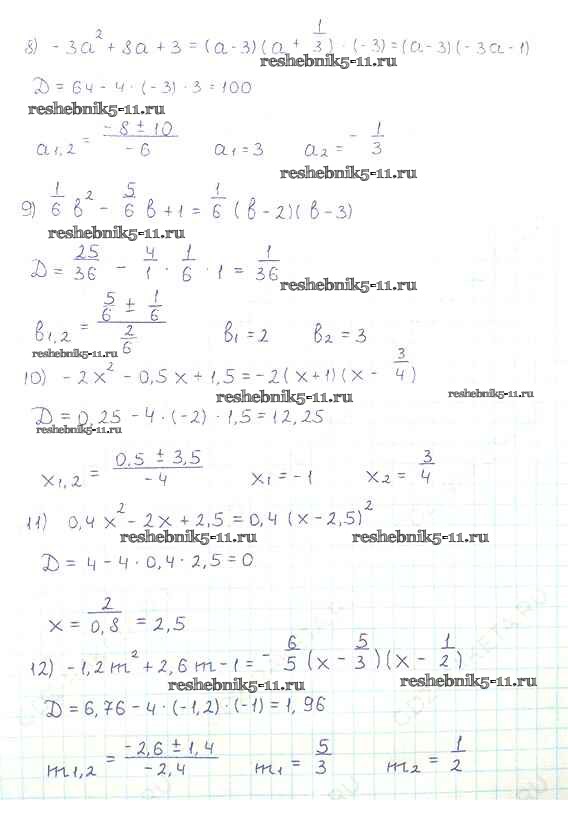 8) -3a² + 8a + 3 = (a - 3)(a + 1/3) · (-3) = (a - 3)(-3a - 1)
reshebnik5-11.ru
D = 64 - 4 · (-3) · 3 = 100
reshebnik5-11.ru
a1,2 = (-8 ± 10)/(-6) a1 = 3 a2 = -1/3
reshebnik5-11.ru
9) 1/6 b² - 5/6 b + 1 = 1/6 (b - 2)(b - 3)
reshebnik5-11.ru
D = 25/36 - 4/1 · 1/6 · 1 = 1/36
reshebnik5-11.ru
b1,2 = (5/6 ± 1/6)/(2/6) b1 = 2 b2 = 3
reshebnik5-11.ru
10) -2x² - 0,5x + 1,5 = -2(x + 1)(x - 3/4)
reshebnik5-11.ru reshebnik5-11.ru
D = 0,25 - 4 · (-2) · 1,5 = 12,25
reshebnik5-11.ru
x1,2 = (0,5 ± 3,5)/(-4) x1 = -1 x2 = 3/4
11) 0,4x² - 2x + 2,5 = 0,4(x - 2,5)²
reshebnik5-11.ru reshebnik5-11.ru
D = 4 - 4 · 0,4 · 2,5 = 0
x = 2/0,8 = 2,5
12) -1,2m² + 2,6m - 1 = -6/5 (x - 5/3)(x - 1/2)
reshebnik5-11.ru reshebnik5-11.ru
D = 6,76 - 4 · (-1,2) · (-1) = 1,96
m1,2 = (-2,6 ± 1,4)/(-2,4) m1 = 5/3 m2 = 1/2